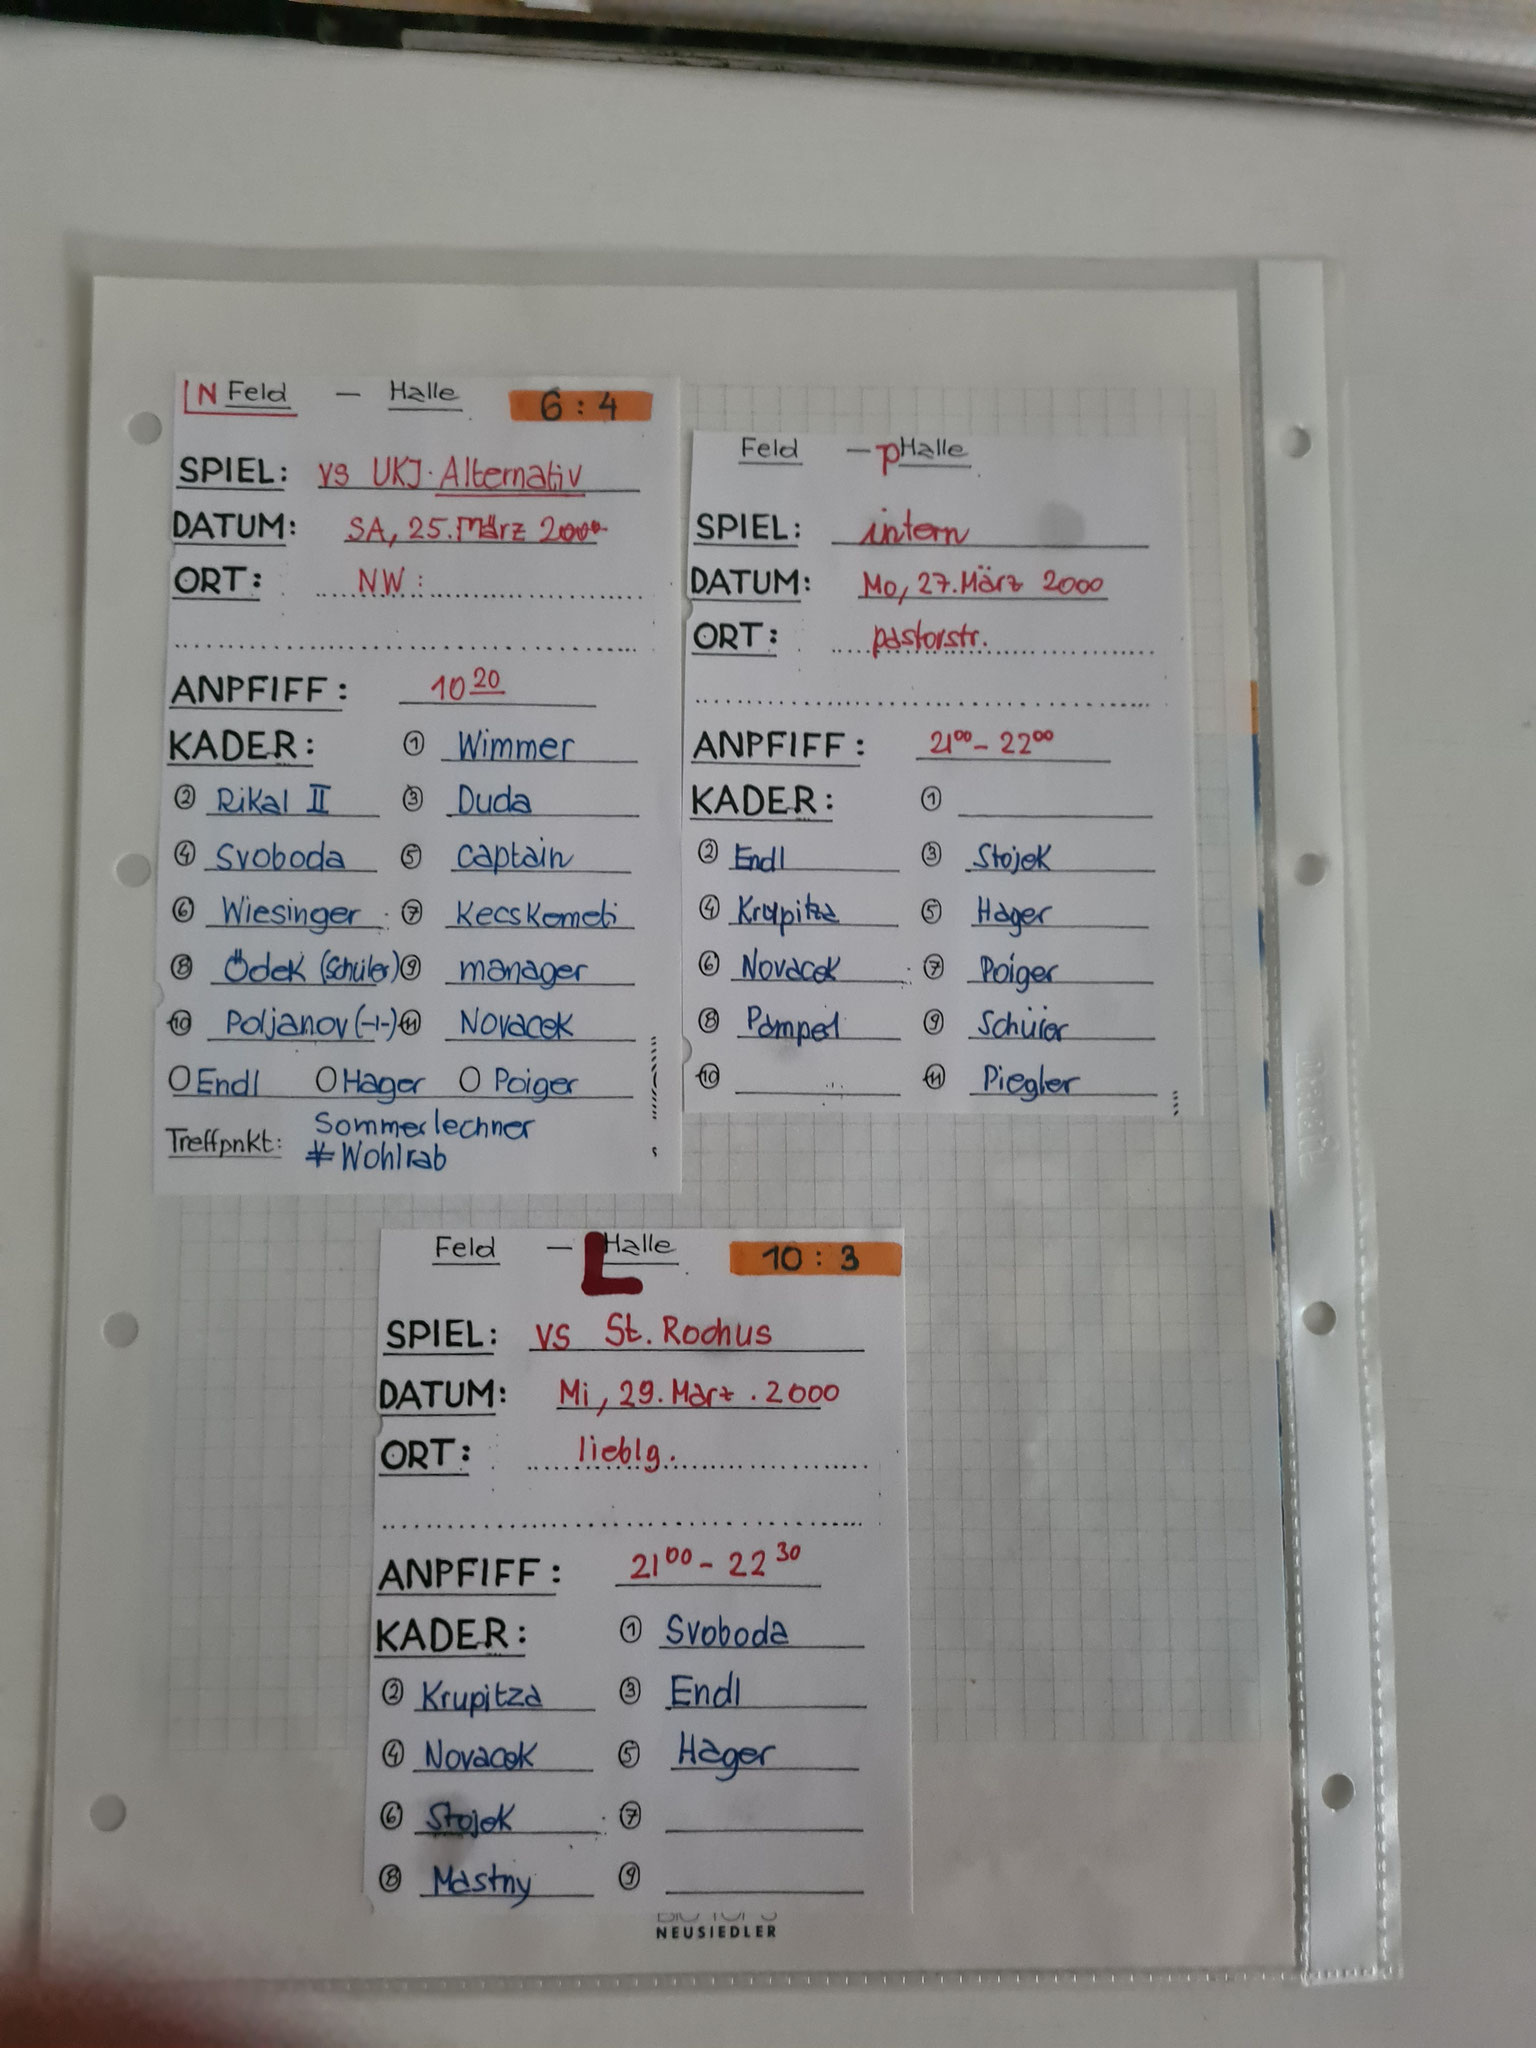 N Feld – Halle 6 : 4
SPIEL: vs UKJ. Alternativ
DATUM: SA, 25. März 2000
ORT: NW:
ANPFIFF: 10 20
KADER: ① Wimmer
② Rikal II ③ Duda
④ Svoboda ⑤ captain
⑥ Wiesinger ⑦ Kecskemeti
⑧ Ödek (Schüler) ⑨ manager
⑩ Poljanov (-"-) ⑪ Novacek
O Endl O Hager O Poiger
Sommerlechner
Treffpnkt: * Wohlrab
Feld – P Halle
SPIEL: intern
DATUM: Mo, 27. März 2000
ORT: pastorstr.
ANPFIFF: 21 00 – 22 00
KADER: ①
② Endl ③ Stojek
④ Krupitza ⑤ Hager
⑥ Novacek ⑦ Poiger
⑧ Pamperl ⑨ Schüler
⑩ ⑪ Piegler
Feld – L Halle 10 : 3
SPIEL: vs St. Rochus
DATUM: Mi, 29. März . 2000
ORT: lieblg.
ANPFIFF: 21 00 – 22 30
KADER: ① Svoboda
② Krupitza ③ Endl
④ Novacek ⑤ Hager
⑥ Stojek ⑦
⑧ Mastny ⑨
NEUSIEDLER